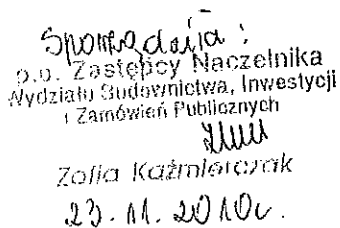 Sporządziła:
p.o. Zastępcy Naczelnika
Wydziału Budownictwa, Inwestycji
i Zamówień Publicznych
Zofia Kaźmierczak
23.11.2010r.